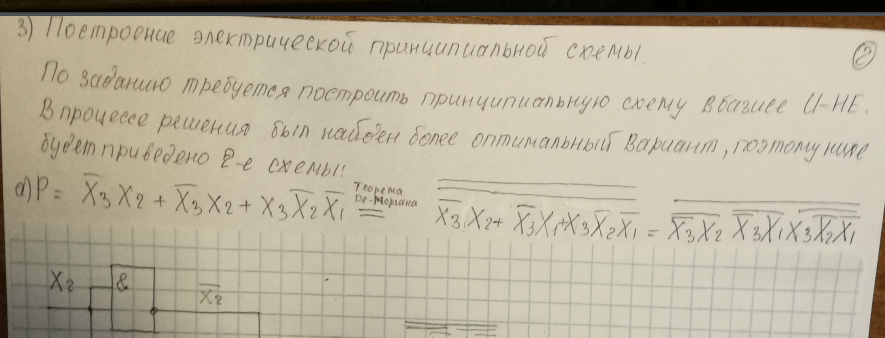 3) Построение электрической принципиальной схемы.
2
По заданию требуется построить принципиальную схему в базисе И-НЕ.
В процессе решения был найден более оптимальный вариант, поэтому ниже
будет приведено 2-е схемы:
а) P = X̅₃X₂ + X̅₃X₂ + X₃X̅₂X̅₁ Теорема Де-Моргана = X̅₃X₂ + X̅₃X₁ + X₃X̅₂X̅₁ = X̅₃X₂ X̅₃X₁ X₃X̅₂X̅₁
X₂ & X̅₂